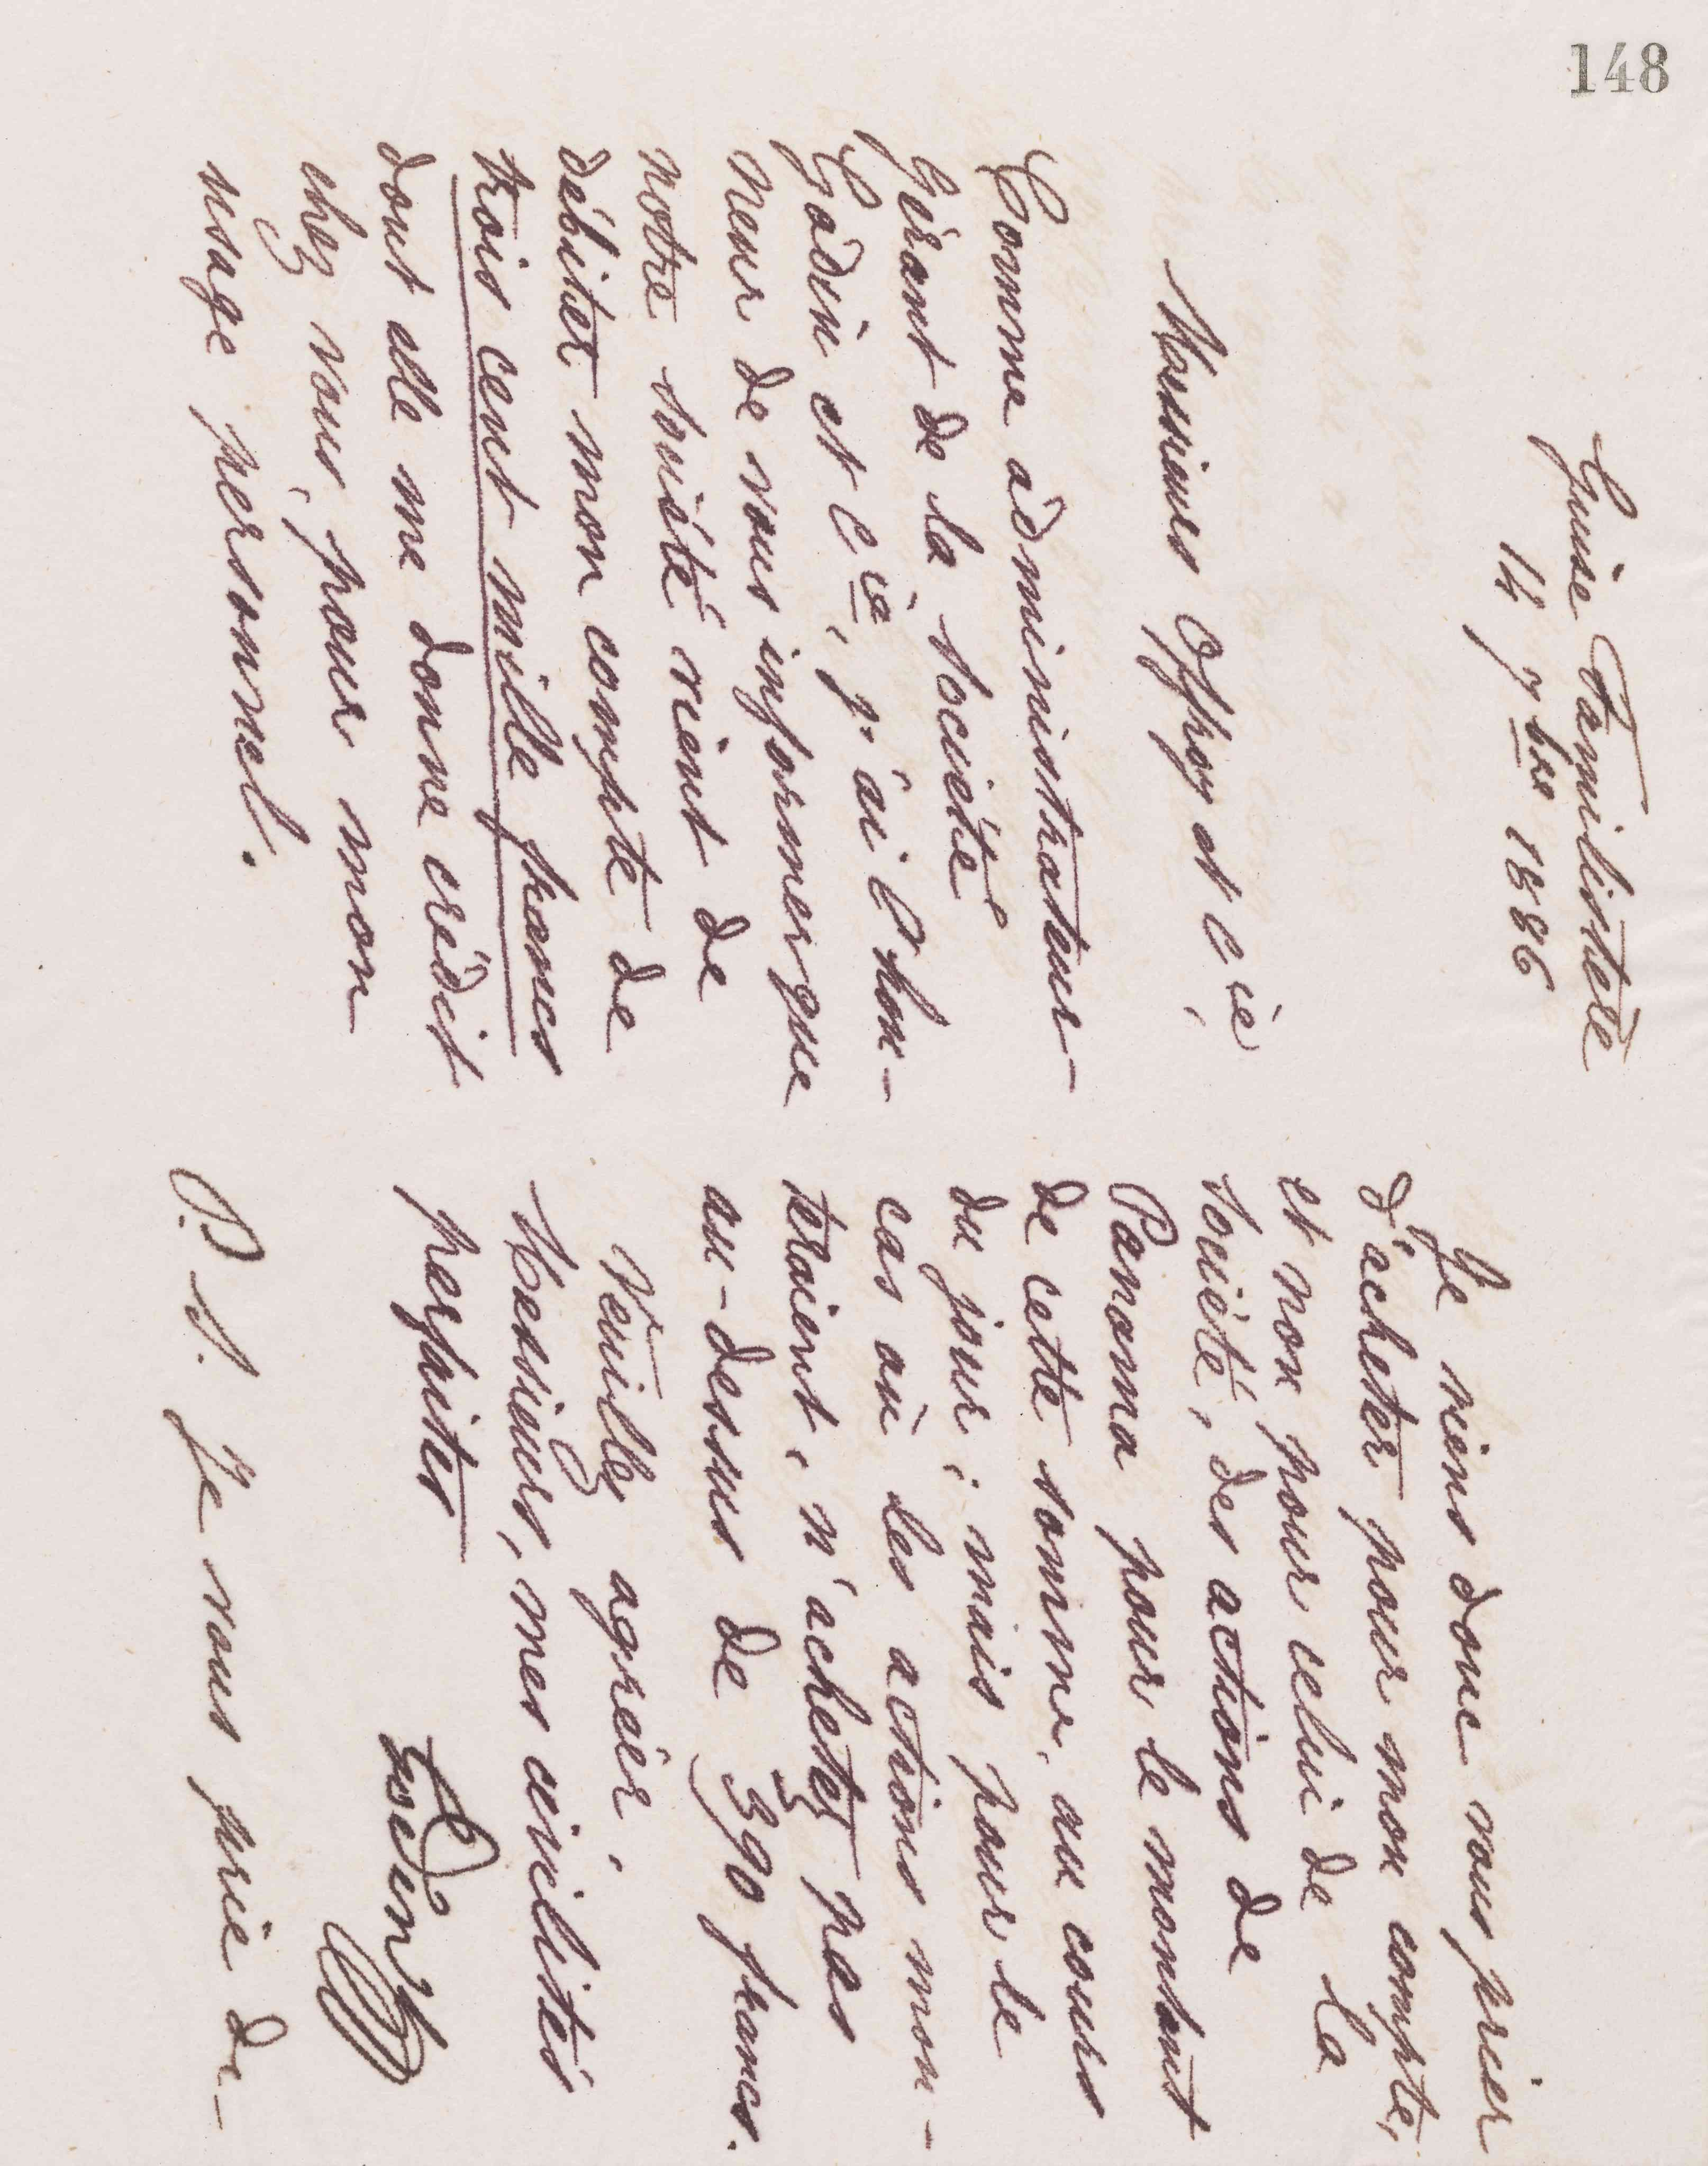 148
Guise Familistère
14 7bre 1886
Messieurs Offroy et Cie,
Comme administrateur-
Gérant de la Société
Godin et Cie, j'ai l'hon-
neur de vous informer que
notre Société vient de
débiter mon compte de
trois cent mille francs
dont elle me donne crédit
chez vous, pour mon
usage personnel.
Je viens donc vous prier
d'acheter pour mon compte,
et non pour celui de la
Société, des actions de
Panama pour le montant
de cette somme, au cours
du jour ; mais pour le
cas où les actions mon-
teraient, n'achetez pas
au-dessus de 390 francs.
Veuillez agréer,
Messieurs, mes civilités
parfaites
Godin
P. S. Je vous prie de